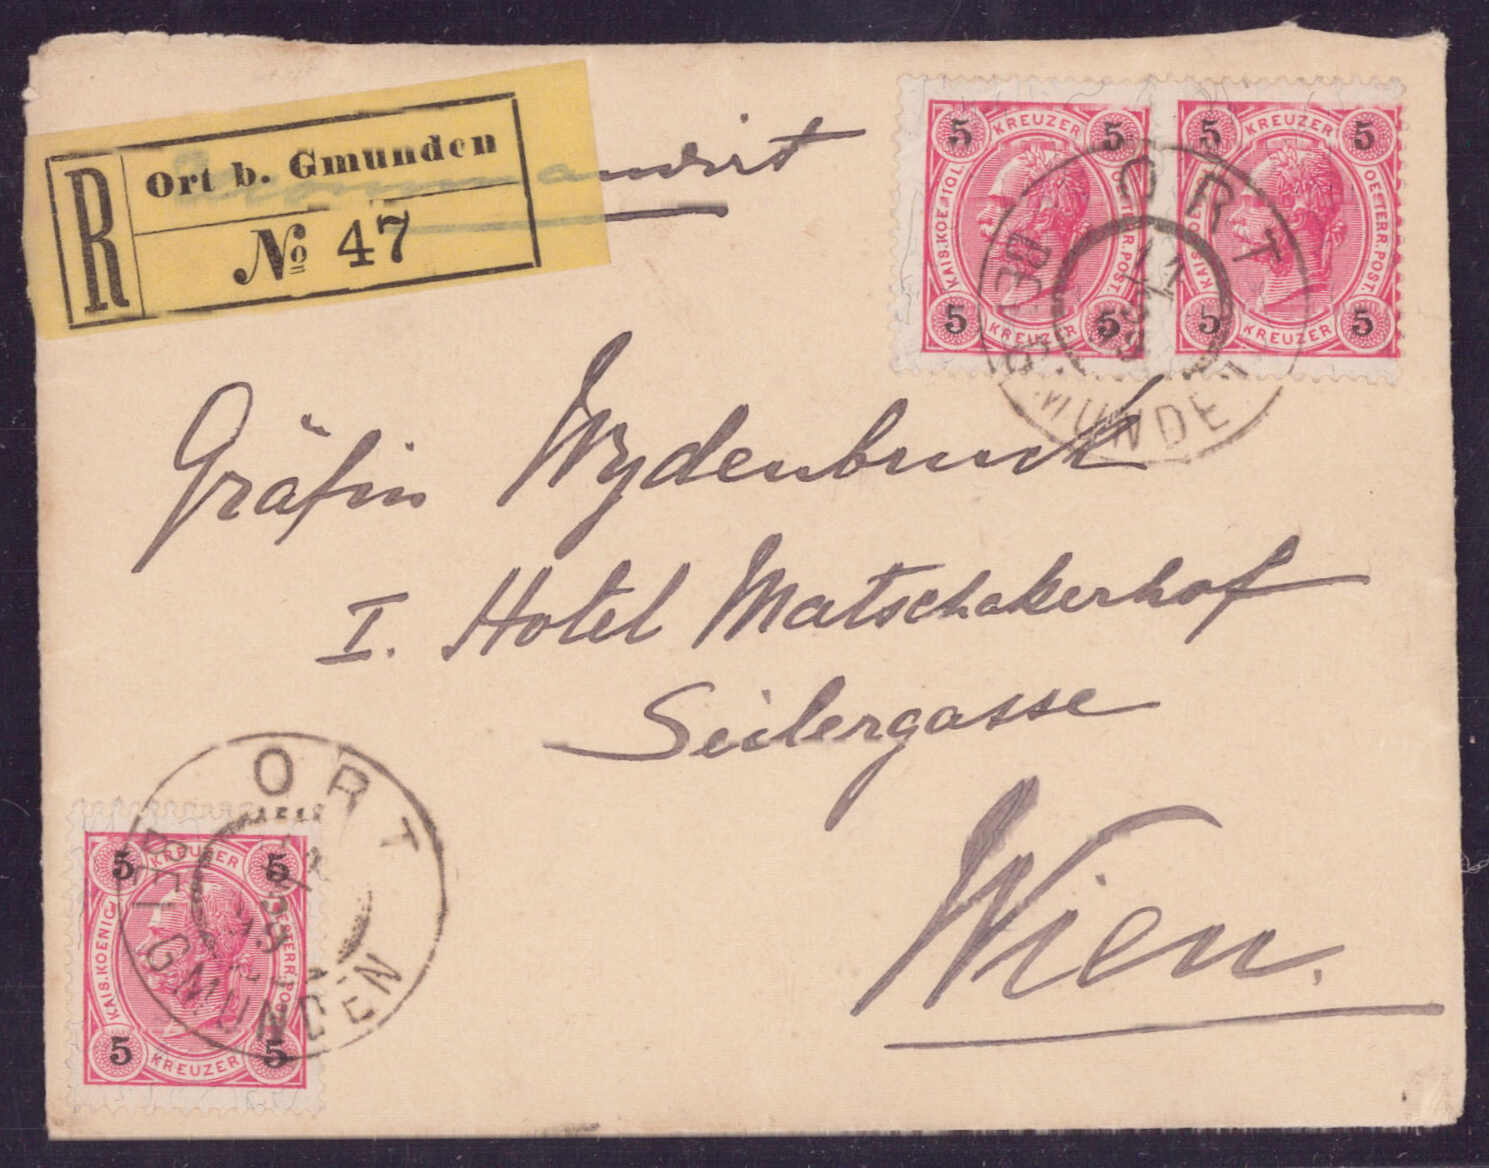 R Ort b. Gmunden
No 47
Gräfin Wydenbruck
I. Hotel Matschakerhof
Seilergasse
Wien.
5 KREUZER 5
KAIS. KOENIGL. OESTERR. POST.
5 KREUZER 5
5 KREUZER 5
KAIS. OESTERR. POST.
5 KREUZER 5
ORT
BEI GMUNDEN
5 KREUZER 5
KAIS. KOENIGL. OESTERR. POST.
5 KREUZER 5
ORT
BEI GMUNDEN